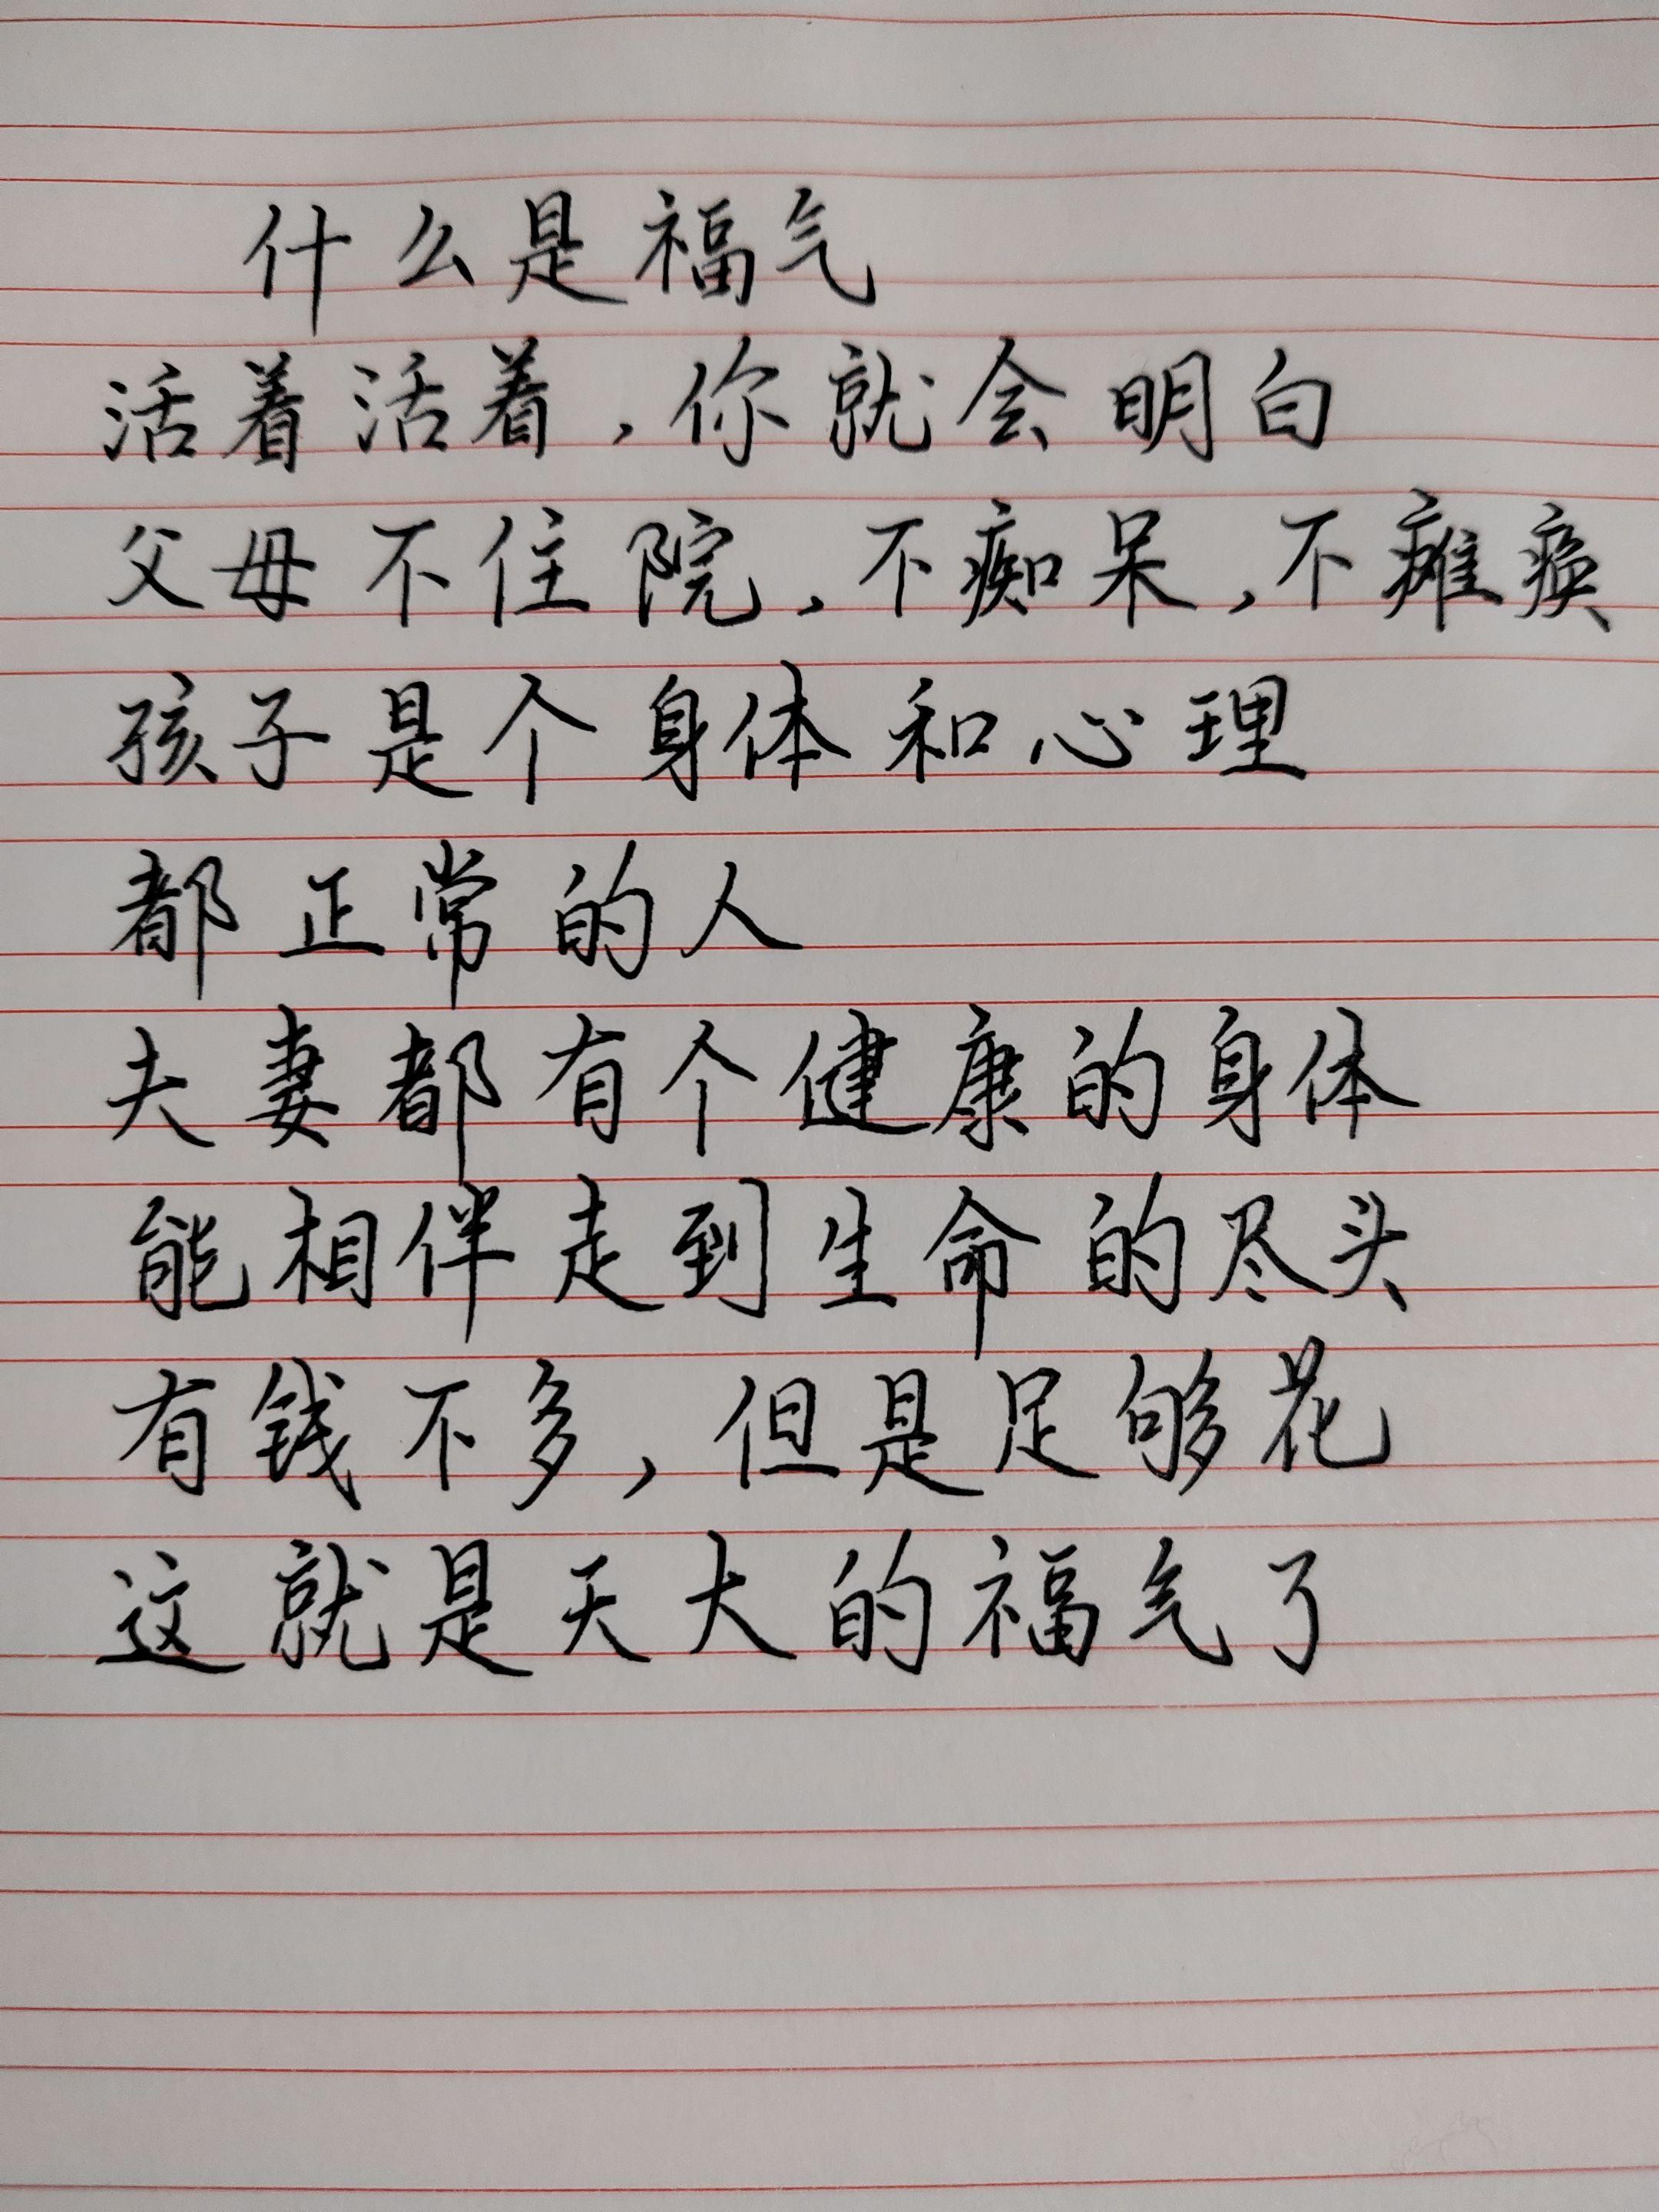 什么是福气
活着活着,你就会明白
父母不住院,不痴呆,不瘫痪
孩子是个身体和心理
都正常的人
夫妻都有个健康的身体
能相伴走到生命的尽头
有钱不多,但是足够花
这就是天大的福气了